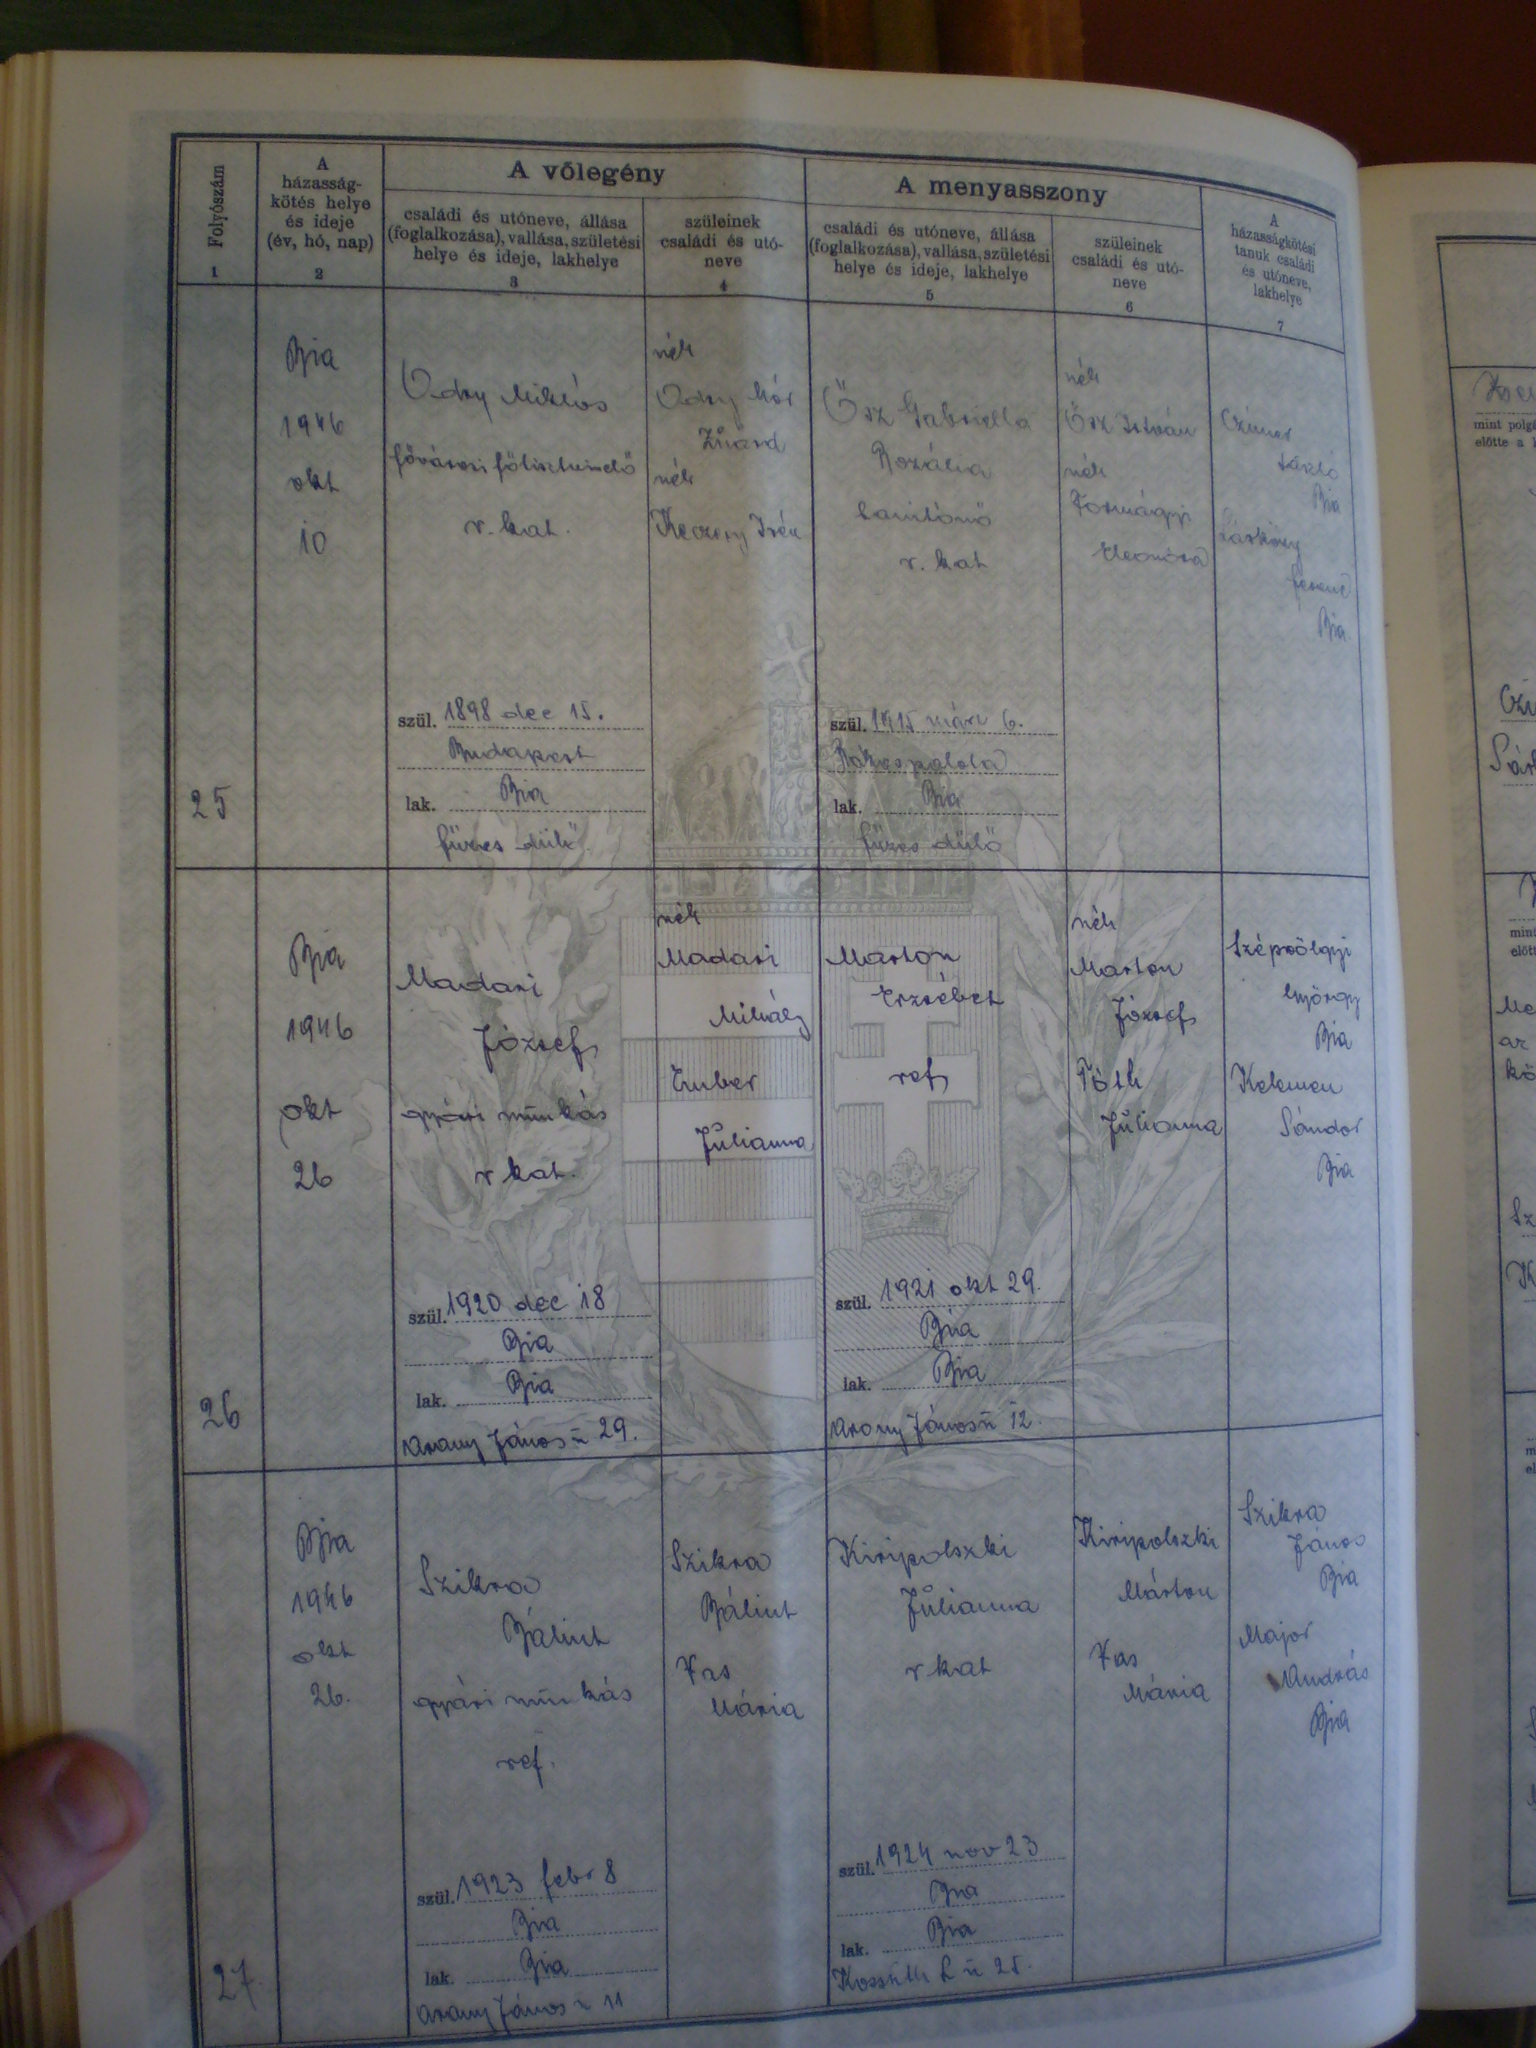 A vőlegény
A menyasszony
Folyószám
A
házasság-
kötés helye
és ideje
(év, hó, nap)
családi és utóneve, állása
(foglalkozása), vallása, születési
helye és ideje, lakhelye
szüleinek
családi és utó-
neve
családi és utóneve, állása
(foglalkozása), vallása, születési
helye és ideje, lakhelye
szüleinek
családi és utó-
neve
A
házasságkötési
tanuk családi
és utóneve,
lakhelye
1
2
3
4
5
6
7
25
Bia
1946
okt
10
Odry Miklós
fővárosi főtisztviselő
r. kat.
szül. 1898 dec 15.
Budapest
lak. Bia
füzes dülő
néh
Odry Mór
néh
Irén
Ősz Gabriella
Rozália
tanítónő
r. kat
szül. 1915 márc 6.
Rákospalota
lak. Bia
füzes dülő
néh
Ősz István
néh
Formágyi
Eleonóra
Czimer
László
Bia
Sárközy
Ferenc
Bia
26
Bia
1946
okt
26
Madari
József
gyári munkás
r kat.
szül. 1920 dec 18
Bia
lak. Bia
Arany János u 29.
néh
Madari
Mihály
Ember
Julianna
Marton
Erzsébet
ref
szül. 1921 okt 29.
Bia
lak. Bia
Arany János u 12.
néh
Marton
József
Tóth
Julianna
Szépvölgyi
György
Bia
Kelemen
Sándor
Bia
27
Bia
1946
okt
26.
Szikra
Bálint
gyári munkás
ref.
szül. 1923 febr 8
Bia
lak. Bia
Arany János u 11
Szikra
Bálint
Vas
Mária
Kiripolszki
Julianna
r kat
szül. 1924 nov 23
Bia
lak. Bia
Kossuth L u 25.
Kiripolszki
Márton
Vas
Mária
Szikra
János
Bia
Major
András
Bia